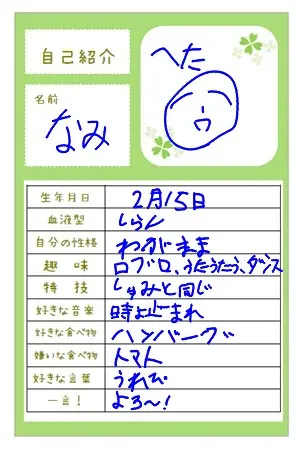 自己紹介
へた
名前
なみ
生年月日 2月15日
血液型 しらん
自分の性格 わがまま
趣味 ロブロ、うたうたう、ダンス
特技 しゅみと同じ
好きな音楽 時よ止まれ
好きな食べ物 ハンバーグ
嫌いな食べ物 トマト
好きな言葉 うれぴ
一言! よろ〜!